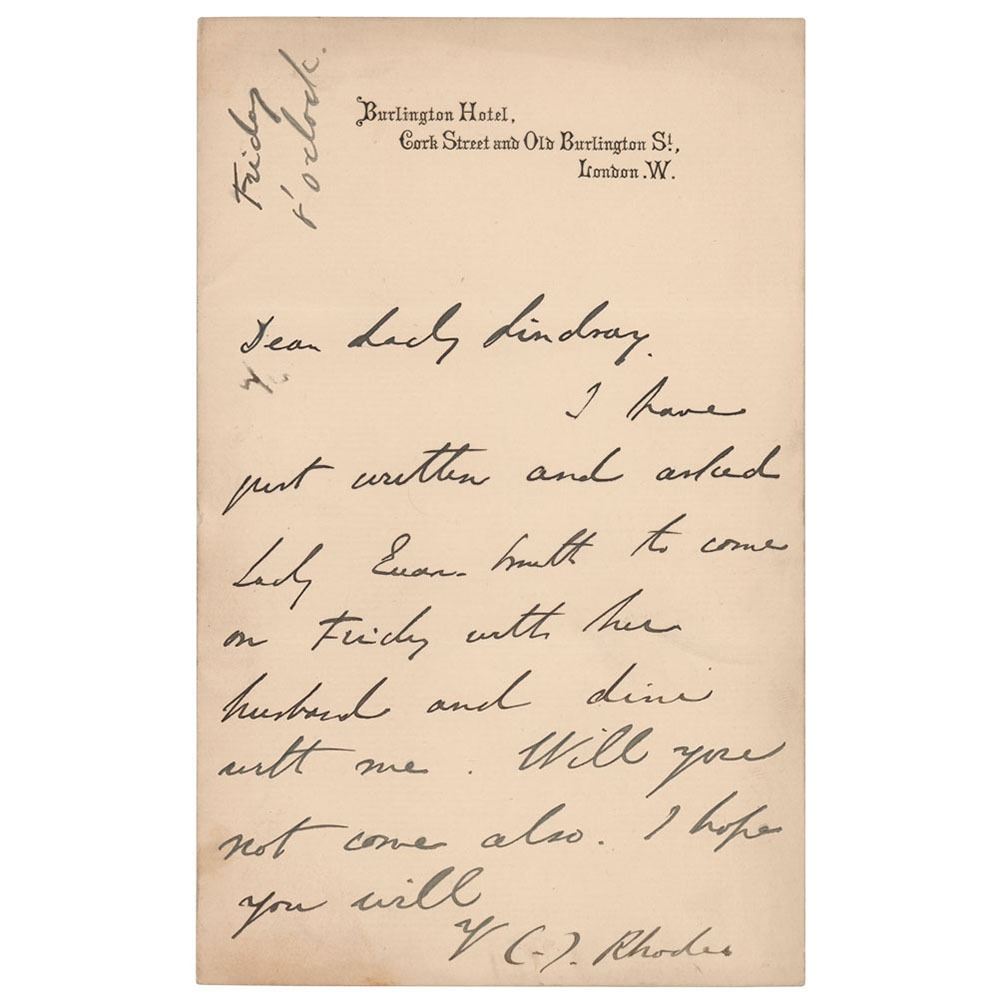 Friday
8 o'clock.
Burlington Hotel,
Cork Street and Old Burlington St,
London. W.
Dear Lady Lindsay.
I have
just written and asked
Lady Euan-Smith to come
on Friday with her
husband and dine
with me. Will you
not come also. I hope
you will
Y C. J. Rhodes